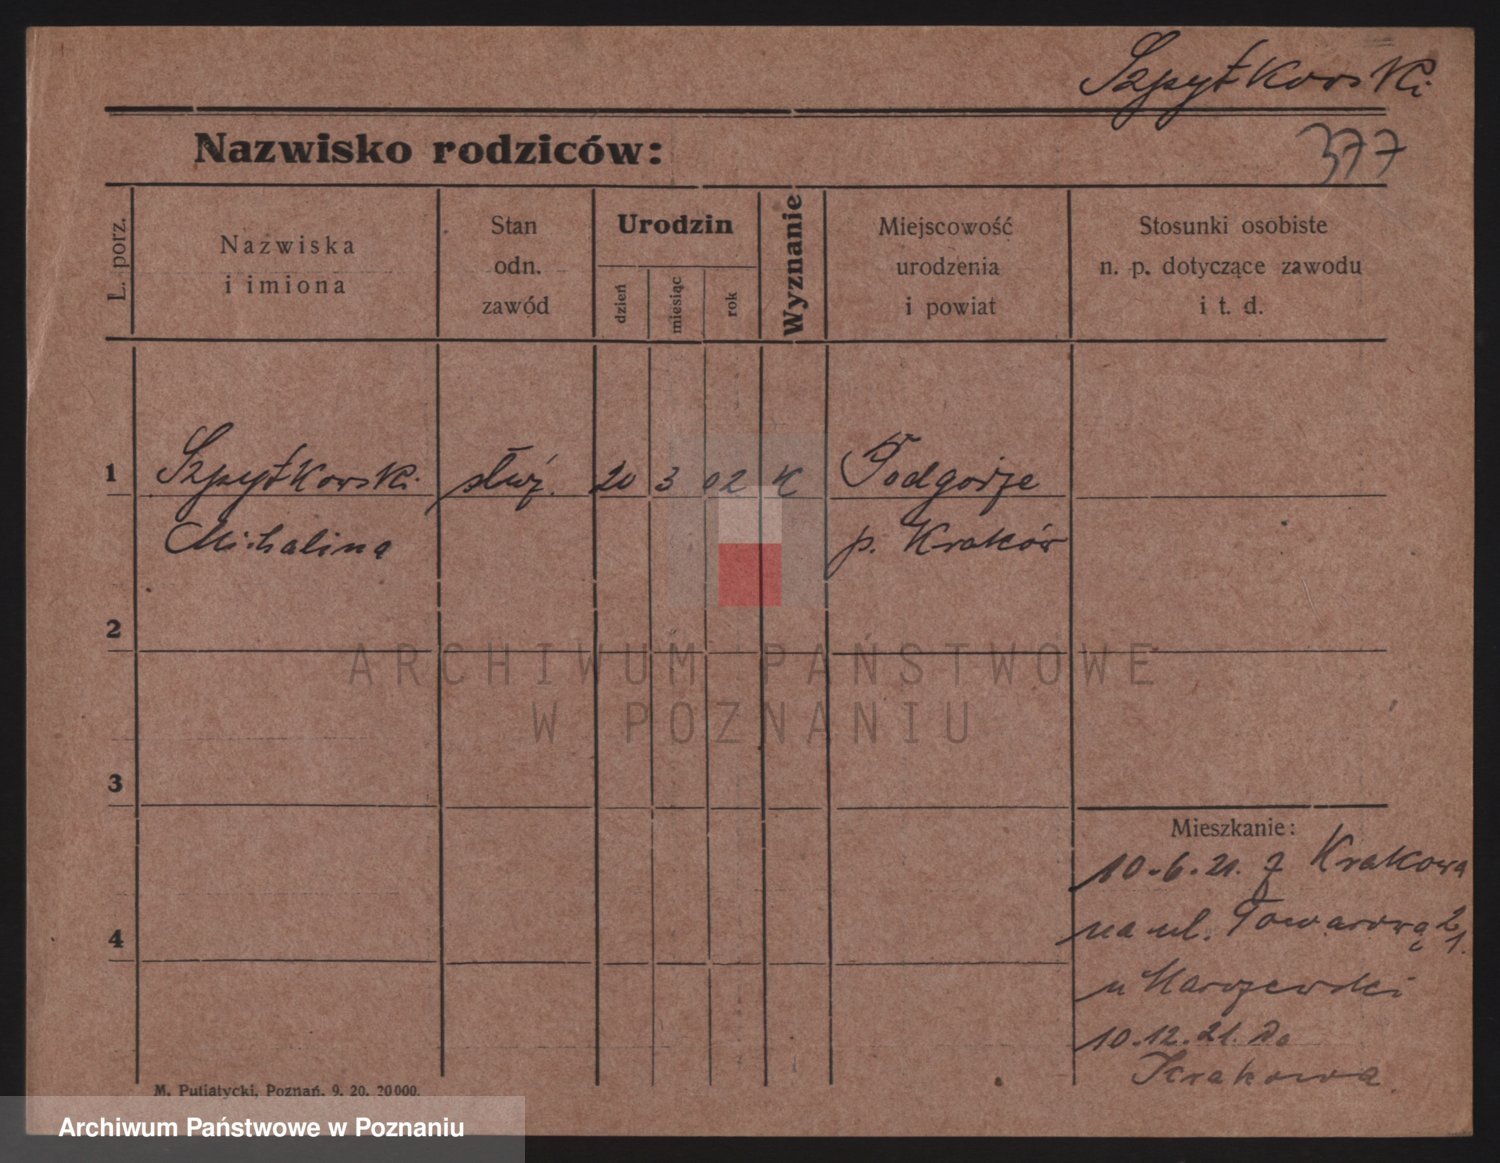 Szpytkowski
377
Nazwisko rodziców:
L. porz.
Nazwiska
i imiona
Stan
odn.
zawód
Urodzin
dzień
miesiąc
rok
Wyznanie
Miejscowość
urodzenia
i powiat
Stosunki osobiste
n. p. dotyczące zawodu
i t. d.
1
Szpytkowski służ. 20 3 02 K Podgórze
Michalina p. Kraków
2
ARCHIWUM PAŃSTWOWE
W POZNANIU
3
Mieszkanie:
10.6.21. z Krakowa
4
na ul. Towarową 21.
u Marszewski
10.12.21. do
Krakowa
M. Putiatycki, Poznań. 9. 20. 20000.
Archiwum Państwowe w Poznaniu